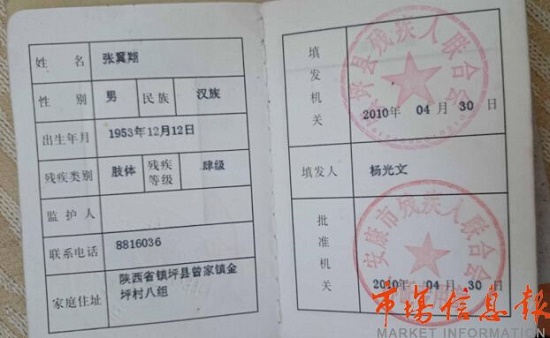 姓 名 张翼翔
性 别 男 民族 汉族
出生年月 1953年12月12日
残疾类别 肢体 残疾等级 肆级
监 护 人
联系电话 8816036
家庭住址 陕西省镇坪县曾家镇金
坪村八组
填发机关 县残疾人联合会
2010年 04 月 30 日
填发人 杨光文
批准机关 安康市残疾人联合会
2010年 04 月 30 日
市场信息报
MARKET INFORMATION